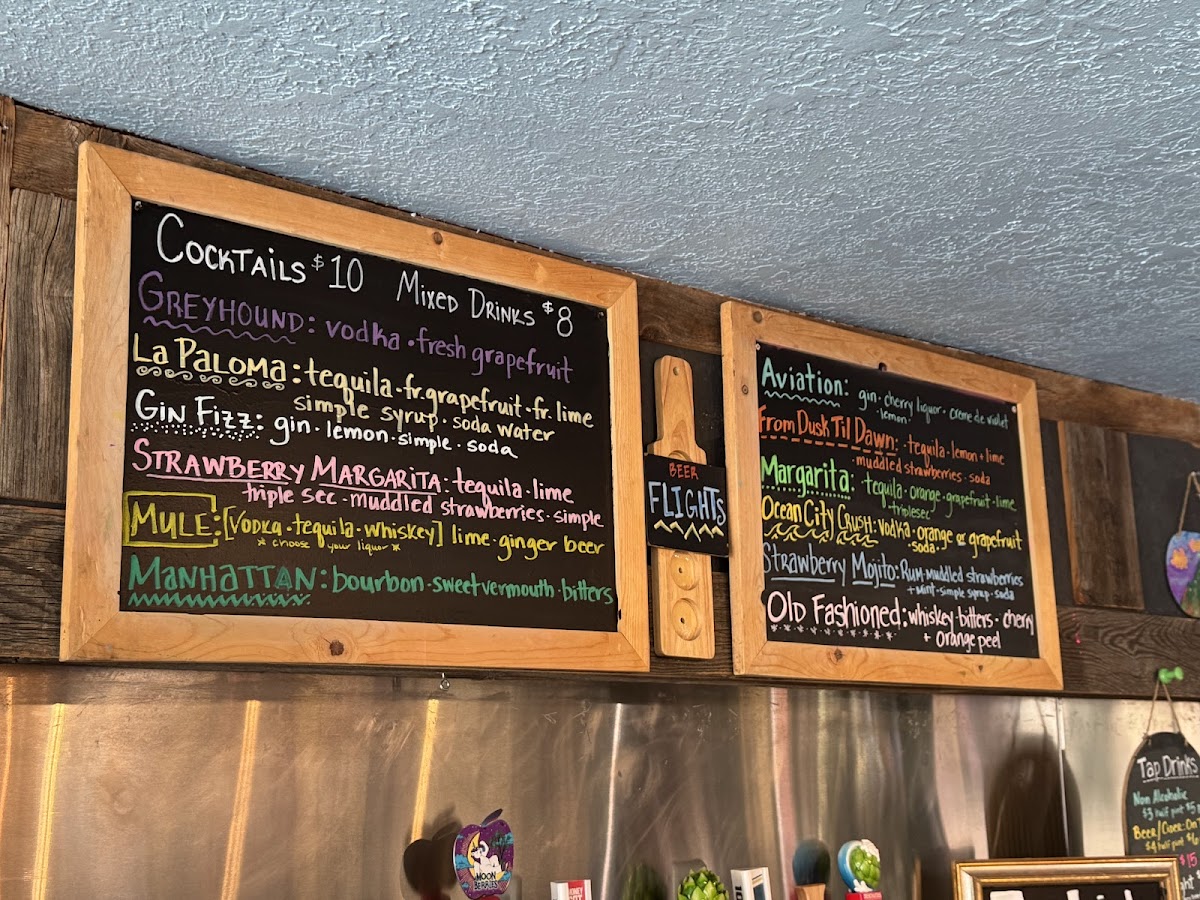 Cocktails $10 Mixed Drinks $8
Greyhound: vodka · fresh grapefruit
La Paloma: tequila · fr. grapefruit · fr. lime
simple syrup · soda water
Gin Fizz: gin · lemon · simple · soda
Strawberry Margarita: tequila · lime
triple sec · muddled strawberries · simple
Mule: [vodka · tequila · whiskey] lime · ginger beer
* choose your liquor *
Manhattan: bourbon · sweet vermouth · bitters
BEER
FLIGHTS
Aviation: gin · cherry liquor · creme de violet
· lemon
From Dusk Til Dawn: · tequila · lemon + lime
· muddled strawberries · soda
Margarita: tequila · orange · grapefruit · lime
triplesec
Ocean City Crush: vodka · orange or grapefruit
· soda
Strawberry Mojito: Rum · muddled strawberries
+ mint · simple syrup · soda
Old Fashioned: whiskey · bitters · cherry
+ orange peel
Tap Drinks
Non Alcoholic
$3 half pint $5
Beer/Cider:
$4 half pint $6
$15
MOON
BERRIES